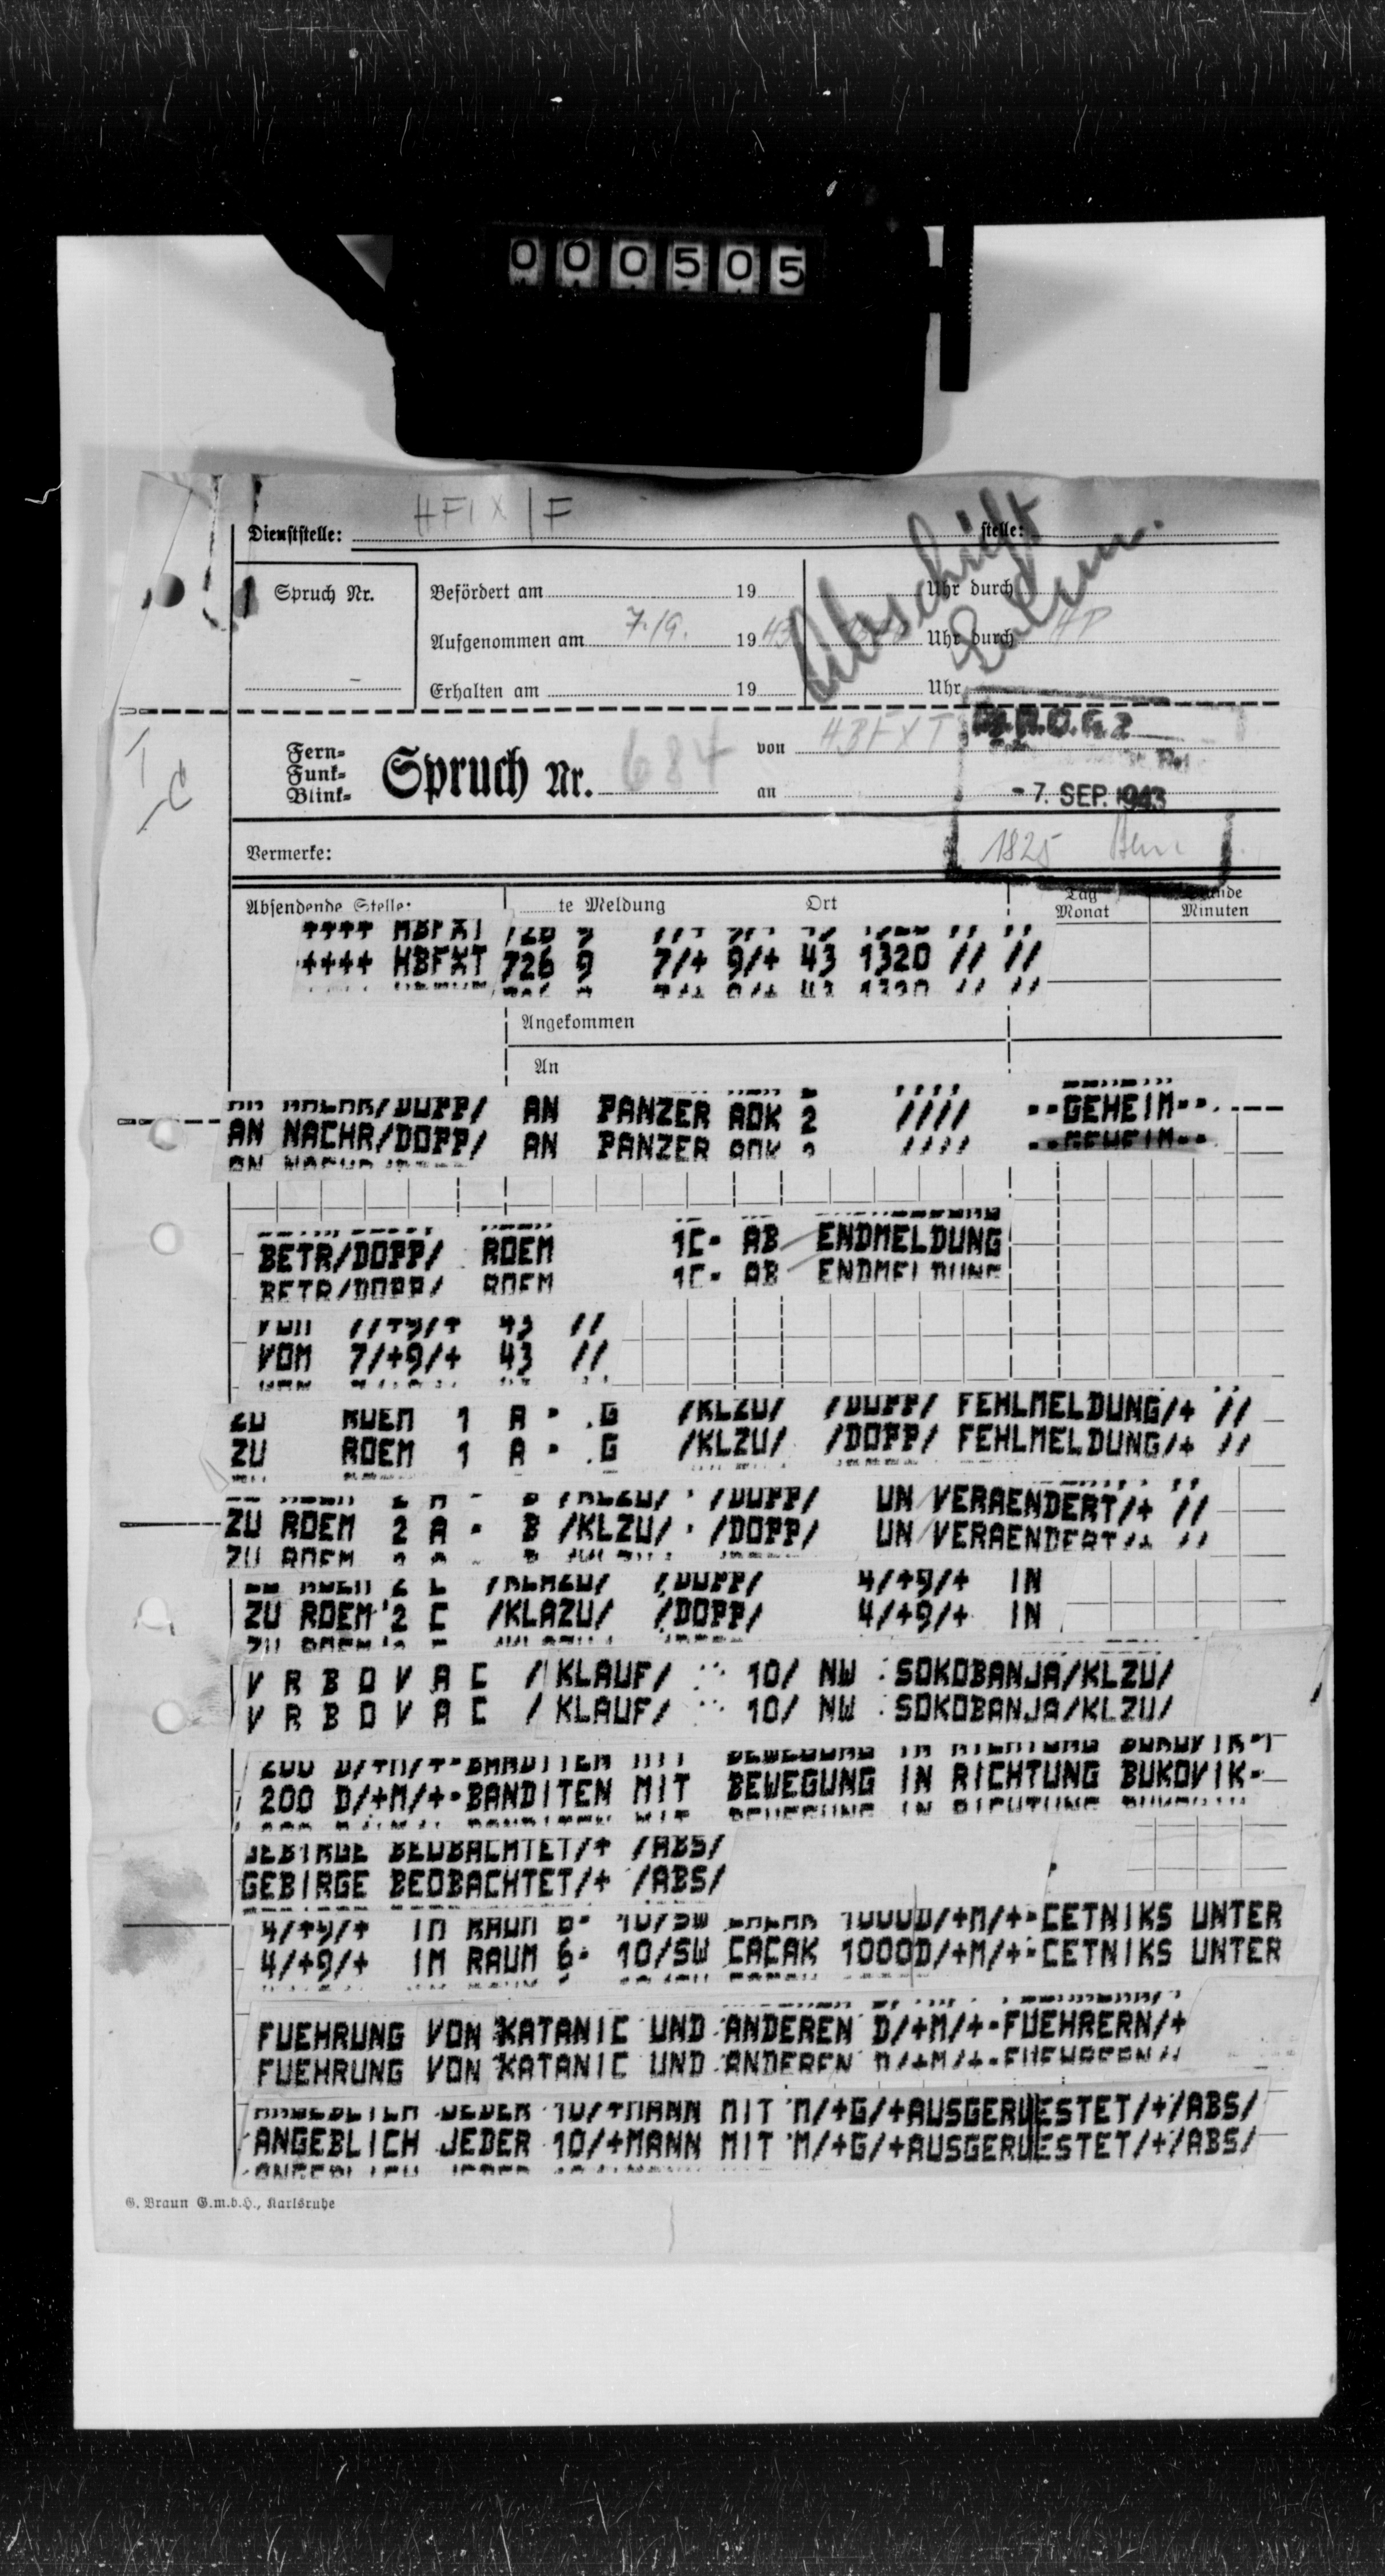 000505
HFIX/F
Dienststelle: stelle:
Abschrift
Spruch Nr.
Befördert am 19 Uhr durch
Aufgenommen am 7./9. 19 43 Uhr durch
Erhalten am 19 Uhr
Fern-
Funk-
Blink-
Spruch Nr. 684 von HBFXT
an
- 7. SEP. 1943
Vermerke: 1825
Absendende Stelle: te Meldung Ort Tag
Monat Minuten
++++ HBFXT 726 9 7/+ 9/+ 43 1320 // //
Angekommen
An
AN NACHR/DOPP/ AN PANZER AOK 2 //// --GEHEIM--
BETR/DOPP/ ROEM 1C- AB ENDMELDUNG
VOM 7/+9/+ 43 //
ZU ROEM 1 A - .G /KLZU/ /DOPP/ FEHLMELDUNG/+ //
ZU ROEM 2 A - B /KLZU/ /DOPP/ UN VERAENDERT/+ //
ZU ROEM 2 C /KLAZU/ /DOPP/ 4/+9/+ IN
V R B O V A C / KLAUF/ 10/ NW SOKOBANJA/KLZU/
200 D/+M/+-BANDITEN MIT BEWEGUNG IN RICHTUNG BUKOVIK-
GEBIRGE BEOBACHTET/+ /ABS/
4/+9/+ IM RAUM 6- 10/SW CACAK 1000D/+M/+-CETNIKS UNTER
FUEHRUNG VON KATANIC UND ANDEREN D/+M/+-FUEHRERN/+
ANGEBLICH JEDER 10/+MANN MIT M/+G/+AUSGERUESTET/+/ABS/
G. Braun G.m.b.H., Karlsruhe